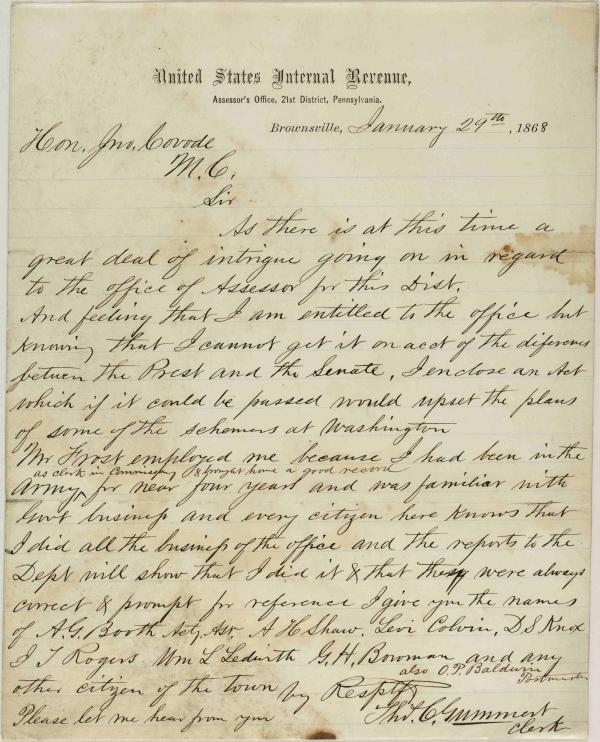 United States Internal Revenue,
Assessor's Office, 21st District, Pennsylvania.
Brownsville, January 29th, 1868
Hon. Jno. Covode
M. C.
Sir
As there is at this time a
great deal of intrigue going on in regard
to the office of Assessor for this Dist.
And feeling that I am entitled to the office but
knowing that I cannot get it on acct of the diference
betwen the Prest and the Senate, I enclose an Act
which if it could be passed would upset the plans
of some of the schemers at Washington
Mr Frost employed me because I had been in the
as clerk in Commissary & brought home a good record
Army, for near four years and was familiar with
Govt business and every citizen here knows that
I did all the business of the office and the reports to the
Dept will show that I did it & that they were always
correct & prompt for reference I give you the names
of A. G. Booth Act, Asr. A H Shaw. Levi Colvin, D S Knox
J T Rogers Wm L G. H. Bowman and any
also O. P. Baldwin
Postmaster
other citizen of the town by Respty
Please let me hear from you Thos. C. Gummert
Clerk